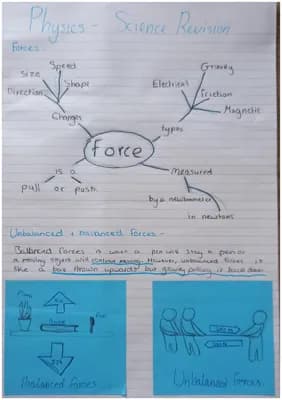 Physics - Science Revision
Forces
Speed
Size
Shape
Direction
Changes
Gravity
Electrical
Friction
Magnetic
types
Force
is a
pull or push
Measured
by a newtonmeter
in newtons
Unbalanced + balanced forces -
Balanced forces is when a pen will stay a pen or
a moving object will continue moving. However, unbalanced forces is
like a box thrown upwards but gravity pulling it back down
Balanced forces
Unbalanced forces